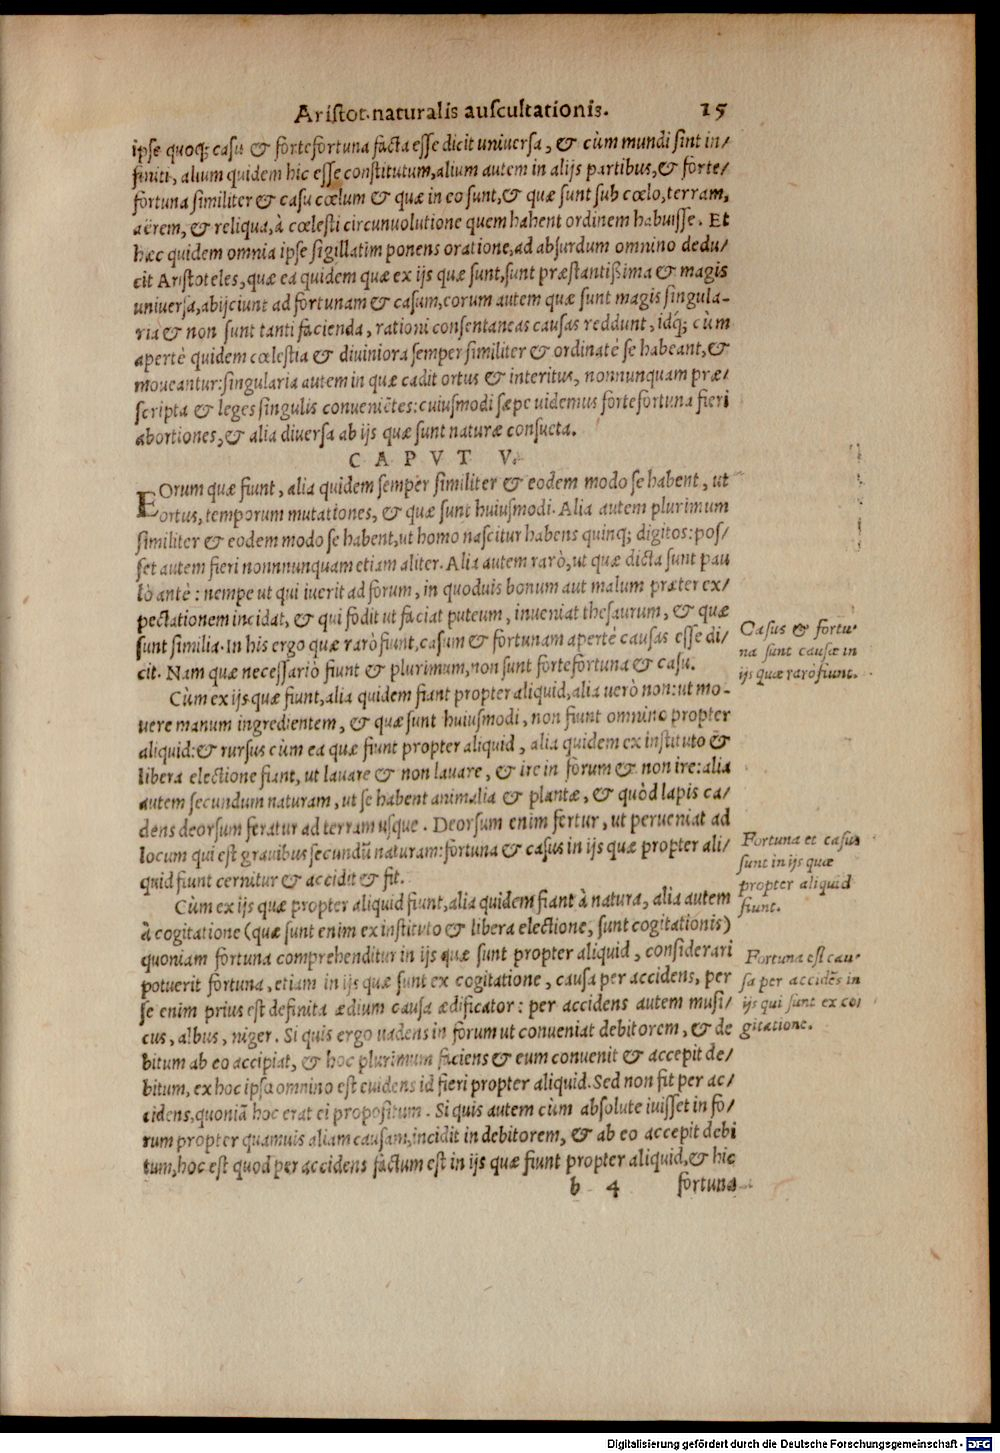 Aristot. naturalis auscultationis. 15
ipse quoq; casu & forte fortuna facta esse dicit universa, & cùm mundi sint in/
finiti, alium quidem hic esse constitutum, alium autem in alijs partibus, & forte/
fortuna similiter & casu cœlum & quæ in eo sunt, & quæ sunt sub cœlo, terram,
aërem, & reliqua, à cœlesti circunvolutione quem habent ordinem habuisse. Et
hæc quidem omnia ipse sigillatim ponens oratione, ad absurdum omnino dedu/
cit Aristoteles, quæ ea quidem quæ ex ijs quæ sunt, sunt præstantißima & magis
universa, abijciunt ad fortunam & casum, eorum autem quæ sunt magis singula-
ria & non sunt tanti facienda, rationi consentaneas causas reddunt, idq́; cùm
apertè quidem cœlestia & diviniora semper similiter & ordinatè se habeant, &
moveantur: singularia autem in quæ cadit ortus & interitus, nonnunquam præ/
scripta & leges singulis conveniẽtes: cuiusmodi sæpe uidemus forte fortuna fieri
abortiones, & alia diversa ab ijs quæ sunt naturæ consueta.
CAPVT V.
EOrum quæ fiunt, alia quidem semper similiter & eodem modo se habent, ut
ortus, temporum mutationes, & quæ sunt huiusmodi. Alia autem plurimum
similiter & eodem modo se habent, ut homo nascitur habens quinq; digitos: pos/
set autem fieri nonnnunquam etiam aliter. Alia autem rarò, ut quæ dicta sunt pau
lò antè: nempe ut qui iuerit ad forum, in quoduis bonum aut malum præter ex/
pectationem incidat, & qui fodit ut faciat puteum, inveniat thesaurum, & quæ
sunt similia. In his ergo quæ rarò fiunt, casum & fortunam apertè causas esse di/
cit. Nam quæ necessariò fiunt & plurimum, non sunt forte fortuna & casu.
Casus & fortu-
na sunt causæ in
ijs quæ rarò fiunt.
Cùm ex ijs quæ fiunt, alia quidem fiant propter aliquid, alia uerò non: ut mo-
vere manum ingredientem, & quæ sunt huiusmodi, non fiunt omnino propter
aliquid: & rursus cùm ea quæ fiunt propter aliquid, alia quidem ex instituto &
libera electione fiant, ut lavare & non lavare, & ire in forum & non ire: alia
autem secundum naturam, ut se habent animalia & plantæ, & quòd lapis ca/
dens deorsum feratur ad terram usque. Deorsum enim fertur, ut perueniat ad
locum qui est gravibus secundũ naturam: fortuna & casus in ijs quæ propter ali/
quid fiunt cernitur & accidit & fit.
Fortuna et casus
sunt in ijs quæ
propter aliquid
fiunt.
Cùm ex ijs quæ propter aliquid fiunt, alia quidem fiant à natura, alia autem
à cogitatione (quæ sunt enim ex instituto & libera electione, sunt cogitationis)
quoniam fortuna comprehenditur in ijs quæ sunt propter aliquid, considerari
potuerit fortuna, etiam in ijs quæ sunt ex cogitatione, causa per accidens, per
se enim prius est definita ædium causa ædificator: per accidens autem musi/
cus, albus, niger. Si quis ergo uadens in forum ut conveniat debitorem, & de
bitum ab eo accipiat, & hoc plurimum faciens & eum convenit & accepit de/
bitum, ex hoc ipsa omnino est euidens id fieri propter aliquid. Sed non fit per ac/
cidens, quoniã hoc erat ei propositum. Si quis autem cùm absolute iuisset in fo/
rum propter quamuis aliam causam, incidit in debitorem, & ab eo accepit debi
tum, hoc est quod per accidens factum est in ijs quæ fiunt propter aliquid, & hic
Fortuna est cau-
sa per accidẽs in
ijs qui sunt ex co
gitatione.
b 4 fortuna
Digitalisierung gefördert durch die Deutsche Forschungsgemeinschaft - DFG